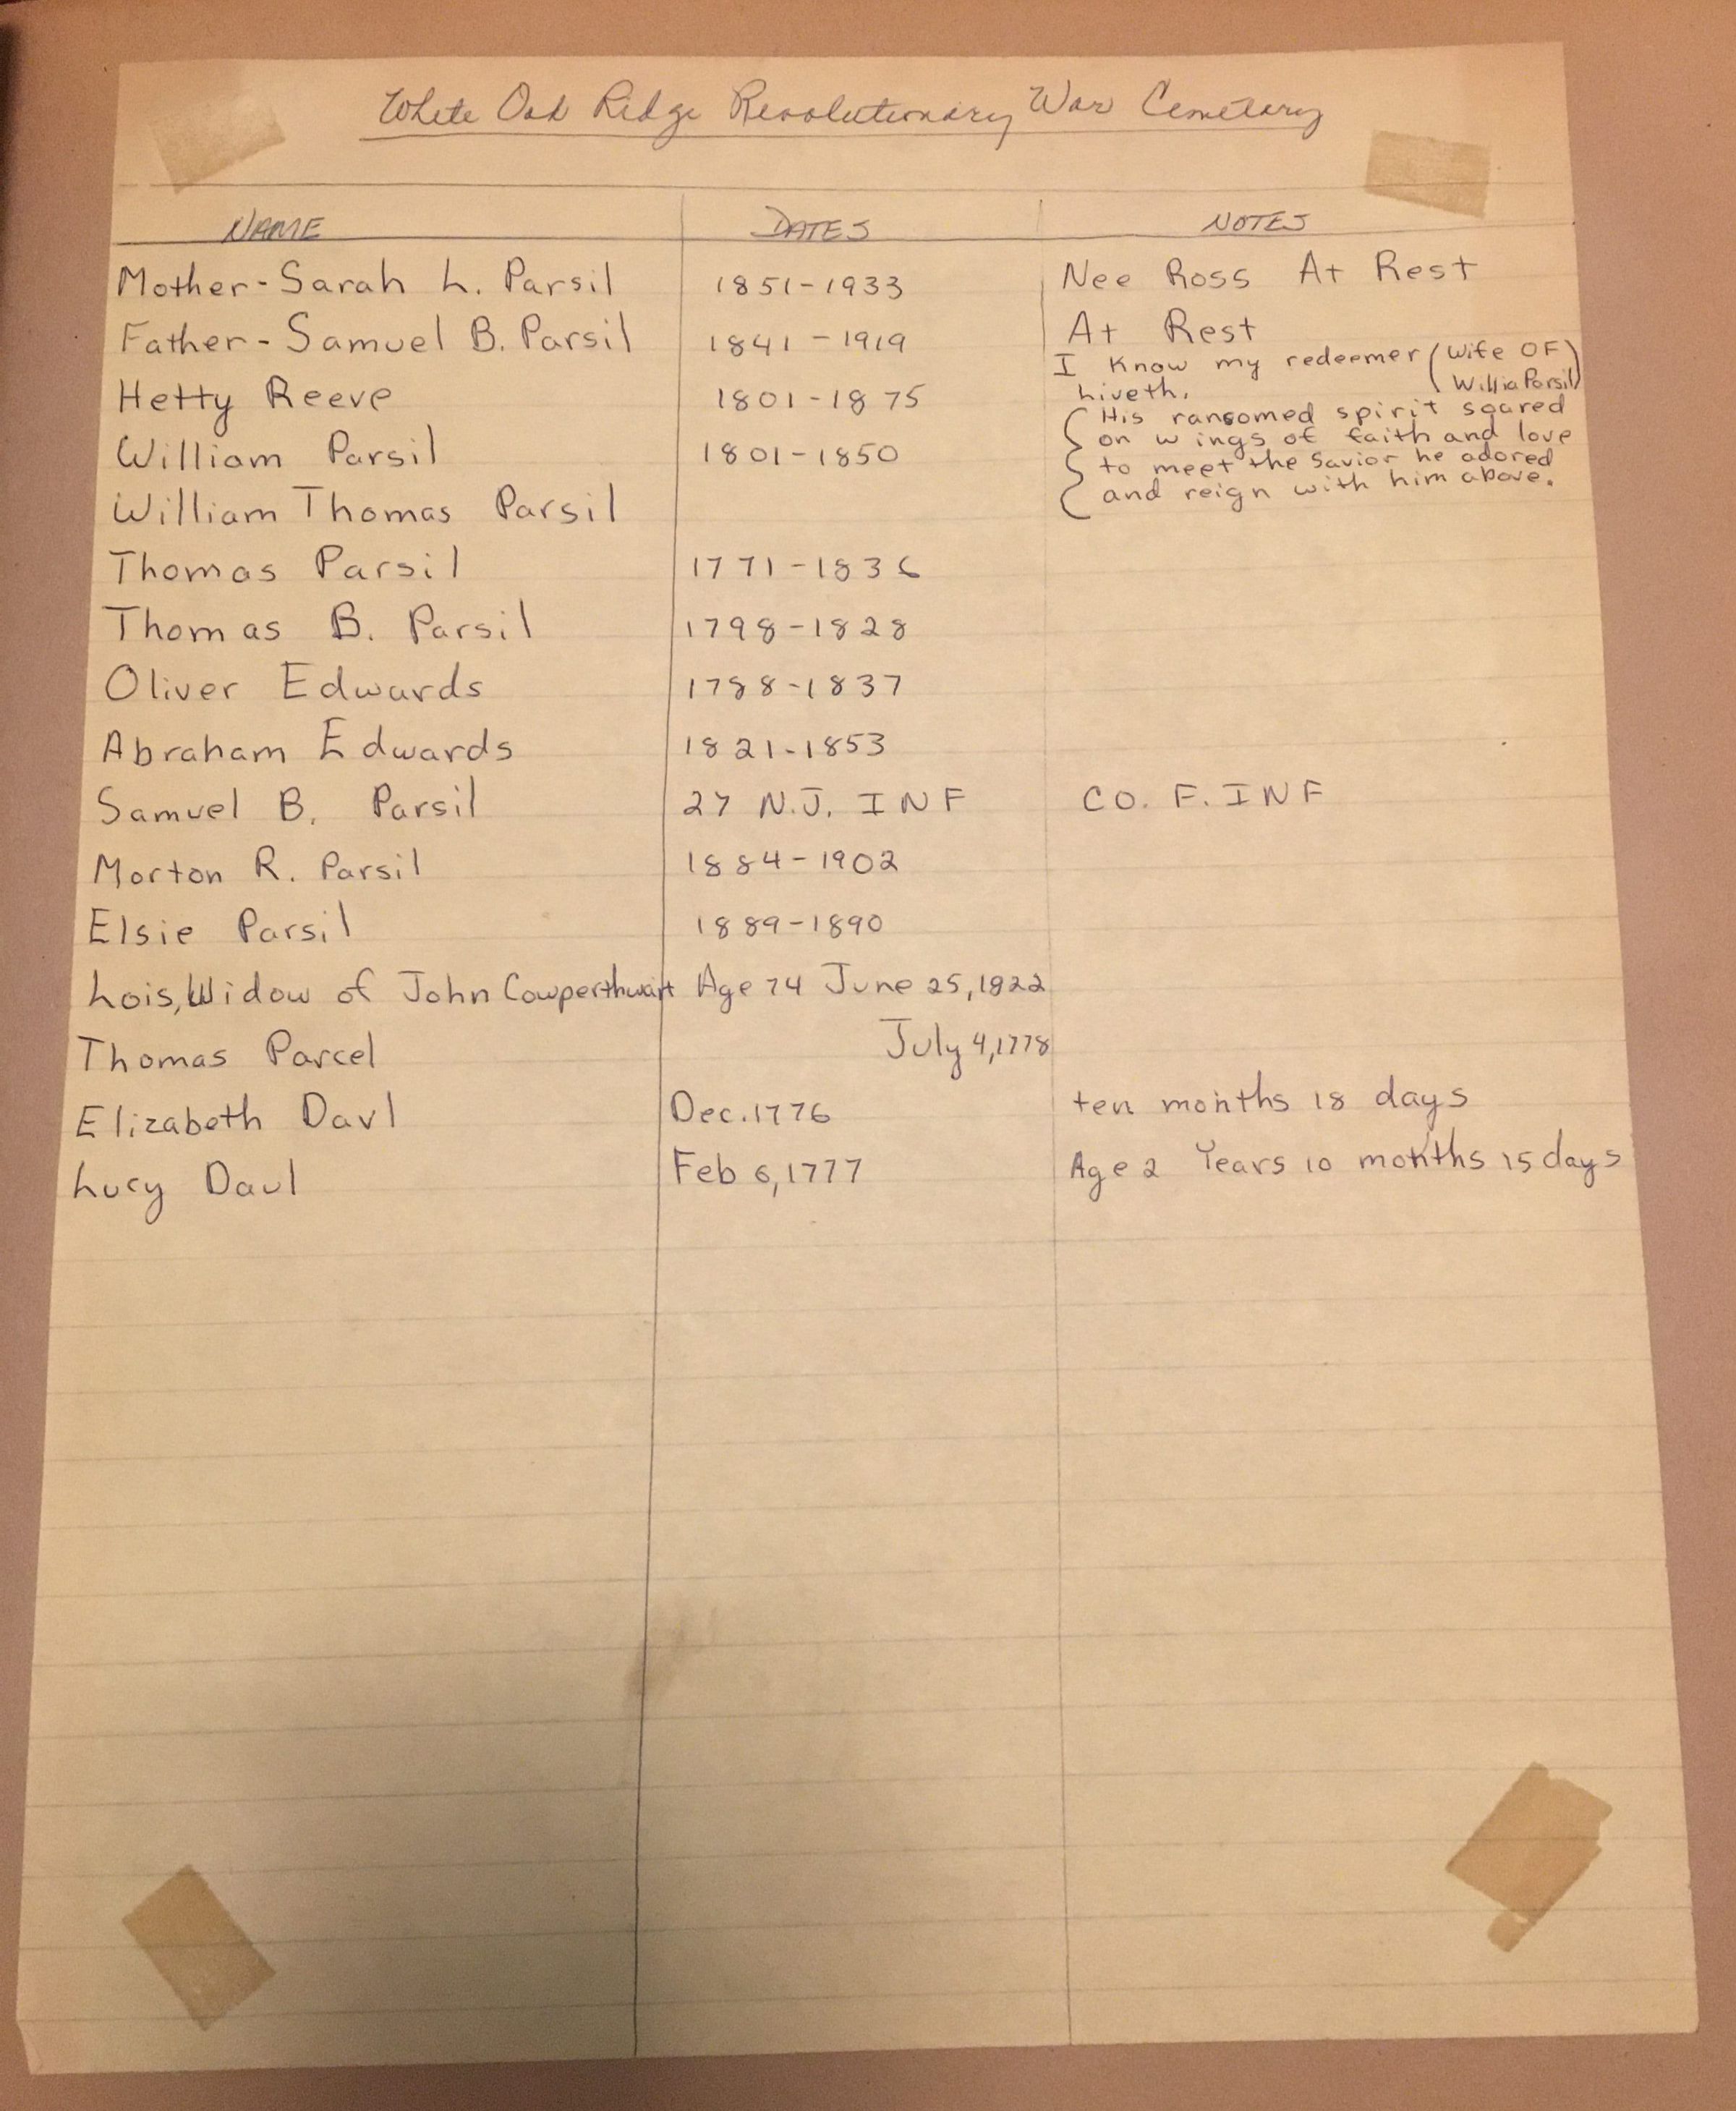 White Oak Ridge Revolutionary War Cemetary
NAME DATES NOTES
Mother-Sarah L. Parsil 1851-1933 Nee Ross At Rest
Father-Samuel B. Parsil 1841-1919 At Rest
Hetty Reeve 1801-1875 I Know my redeemer (Wife OF
Liveth. Willia Parsil)
William Parsil 1801-1850 { His ransomed spirit soared
on wings of faith and love
to meet the Savior he adored
and reign with him above.
William Thomas Parsil
Thomas Parsil 1771-1836
Thomas B. Parsil 1798-1828
Oliver Edwards 1788-1837
Abraham Edwards 1821-1853
Samuel B. Parsil 27 N.J. INF CO. F. INF
Morton R. Parsil 1884-1902
Elsie Parsil 1889-1890
Lois, Widow of John Cowperthwart Age 74 June 25, 1822
Thomas Parcel July 4, 1778
Elizabeth Davl Dec. 1776 ten months 18 days
Lucy Davl Feb 6, 1777 Age 2 Years 10 months 15 days